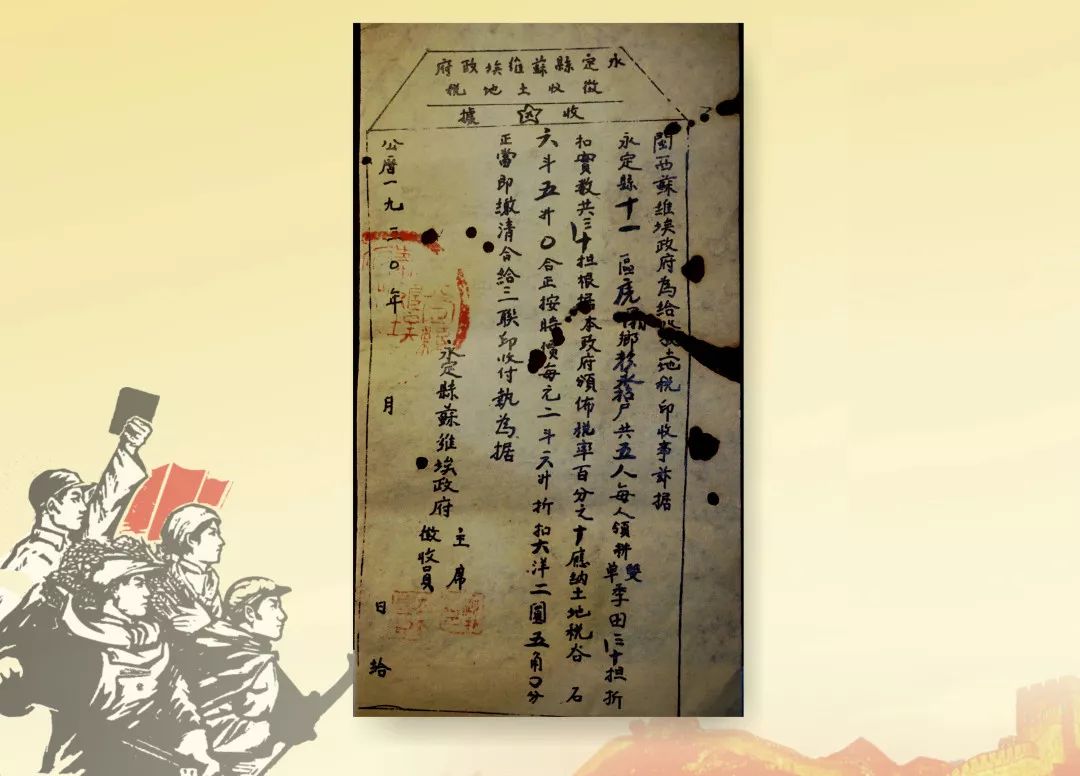 永定縣蘇維埃政府
徵收土地稅
收據
閩西蘇維埃政府為給收土地税印收事茲据
永定縣十一區虎鄉户共五人每人領耕雙單季田三十担折
扣實数共三十担根据本政府頒佈税率百分之十應納土地税谷 石
六斗五升〇合正按時價每元二斗六升折扣大洋二圓五角〇分
正當即繳清合給三联印收付執為据
永定縣蘇維埃政府 主席
徵收員
公曆一九三〇年 月 日 給